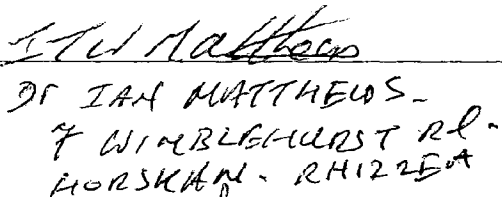 ITW Matthews
Dr IAN MATTHEWS-
7 WIMBLEHURST Rd-
HORSHAM- RH12 2EA